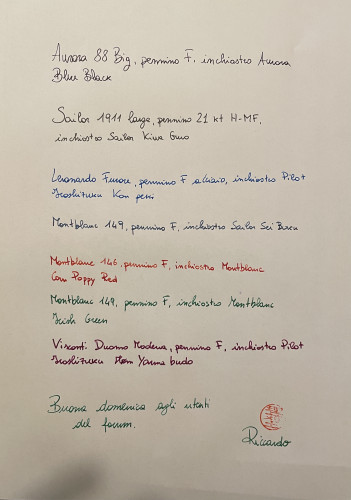 Aurora 88 Big, pennino F, inchiostro Aurora
Blue Black
Sailor 1911 large, pennino 21 kt H-MF,
inchiostro Sailor Kiwa Guro
Leonardo Furore, pennino F acciaio, inchiostro Pilot
Iroshizuku Kon peki
Montblanc 149, pennino F, inchiostro Sailor Sei Boku
Montblanc 146, pennino F, inchiostro Montblanc
Corn Poppy Red
Montblanc 149, pennino F, inchiostro Montblanc
Irish Green
Visconti Duomo Modena, pennino F, inchiostro Pilot
Iroshizuku Yama budo
Buona domenica agli utenti
del forum.
Riccardo